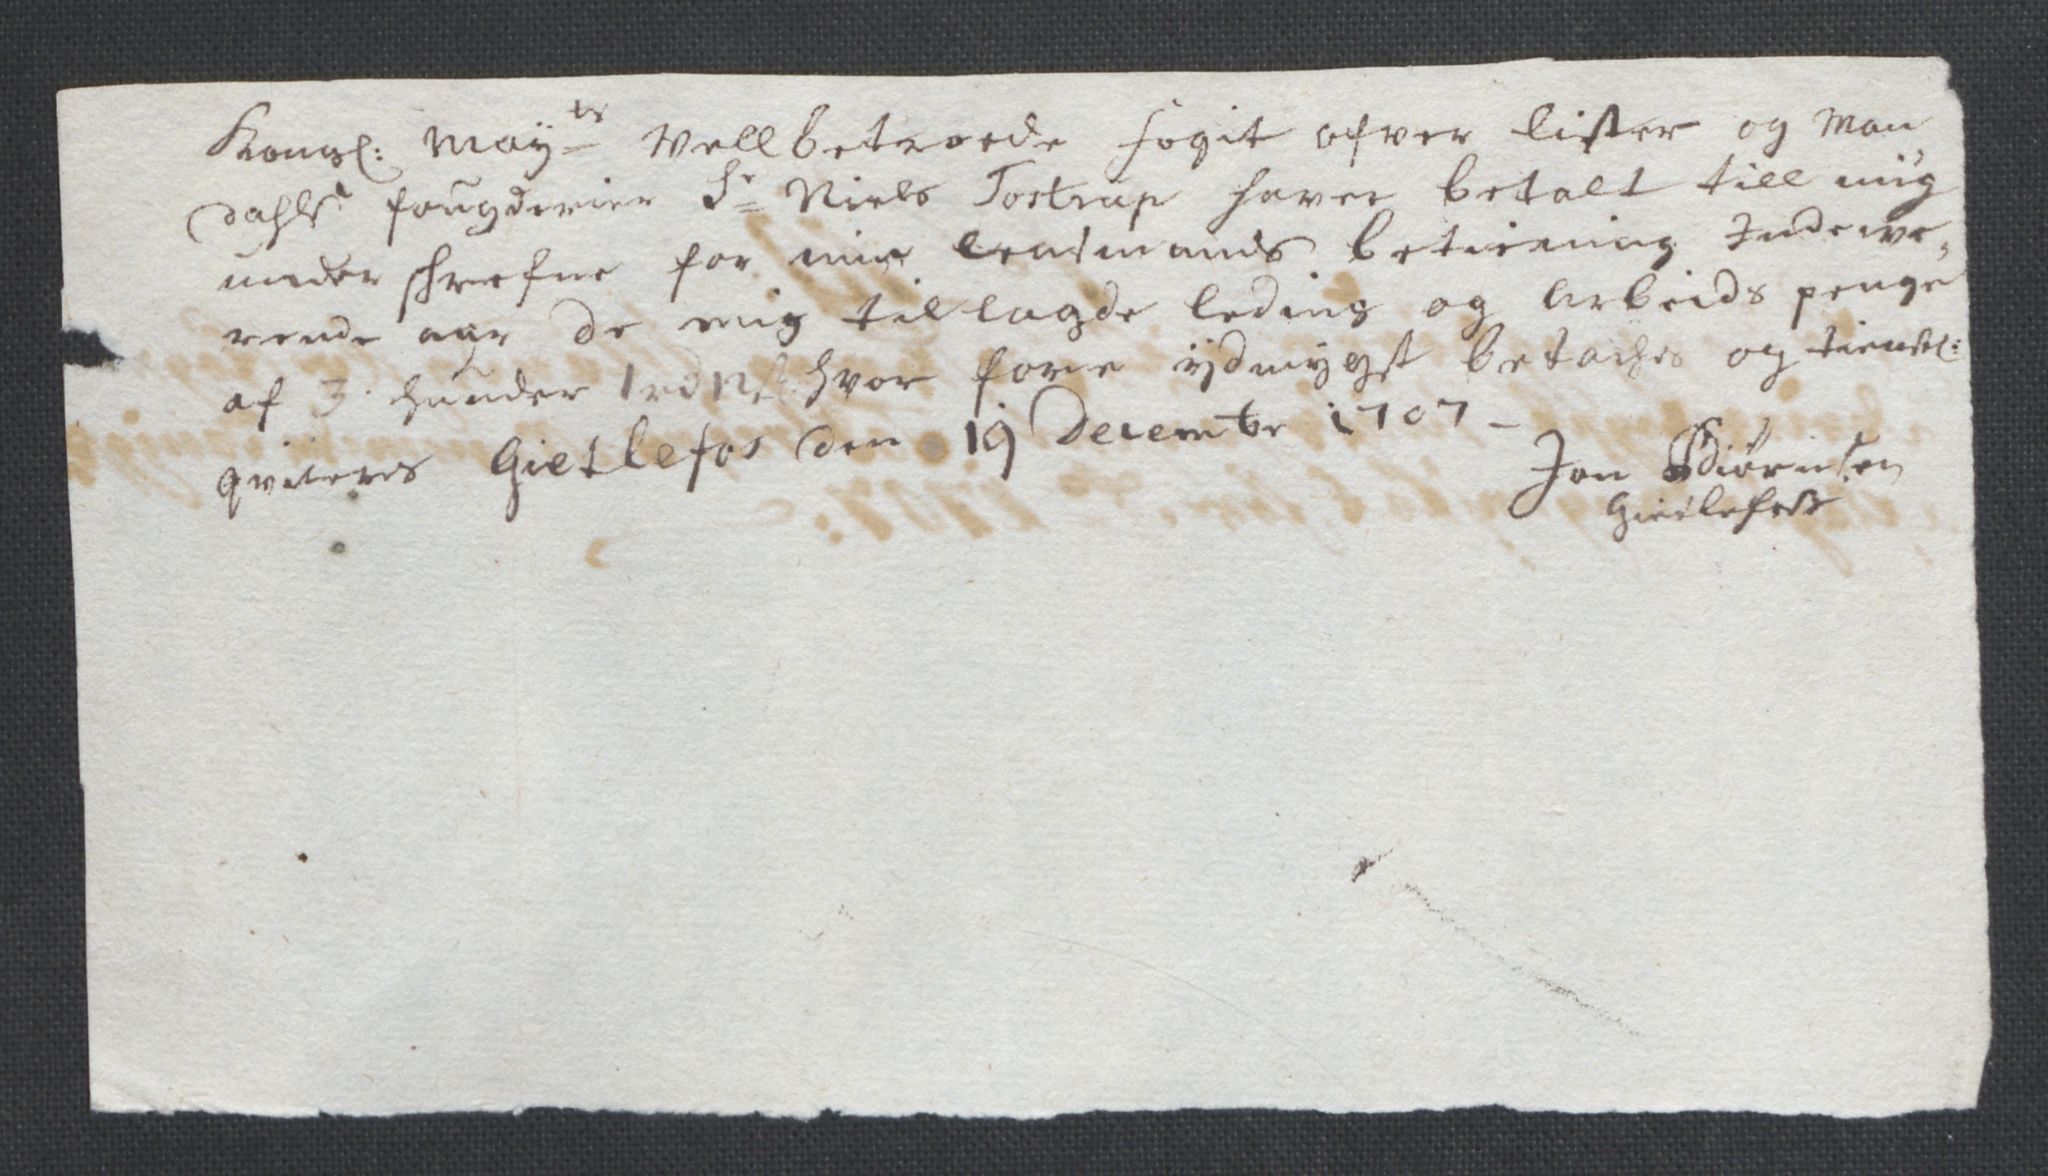 Kongl: May:ts Vellbetroede fogit ofver Lister og Man
dahls fougderier Sr Niels Tostrup haver betalt till mig
underschrefne for min Lensmands betiening Indewe,
rende aar de mig tillagde leding og Arbeids penge
af 3 hunder hvor fore ydmygst betaches og tienstl:
qviteris Gietlefos den 19 Decembr 1707 –
Jon Biörnsen
Gietlefoss